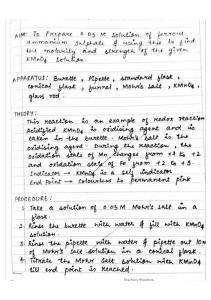 AIM: To Prepare 0.05 M solution of ferrous
ammonium sulphate & using this to find
the molarity and strength of the given
KMnO4 solution
APPARATUS: Burette, Pipette, standard flask,
conical flask, funnel, Mohr's salt, KMnO4,
glass rod.
THEORY:
This reaction is an example of redox reaction
Acidified KMnO4 is oxidising agent and is
taken in the burette. Mohr's salt is the
oxidising agent. During the reaction, the
oxidation state of Mn changes from +7 to +2
and oxidation state of Fe from +2 to +3.
Indicator → KMnO4 is a self indicator
End Point → colourless to permanent pink
PROCEDURE:
1. Take a solution of 0.05 M Mohr's salt in a
flask.
2. Rinse the burette with water & fill with KMnO4
solution.
3. Rinse the pipette with water & pipette out 10
of Mohr's salt solution in a conical flask.
4. Titrate the Mohr's salt solution with KMnO4
till end point is reached.